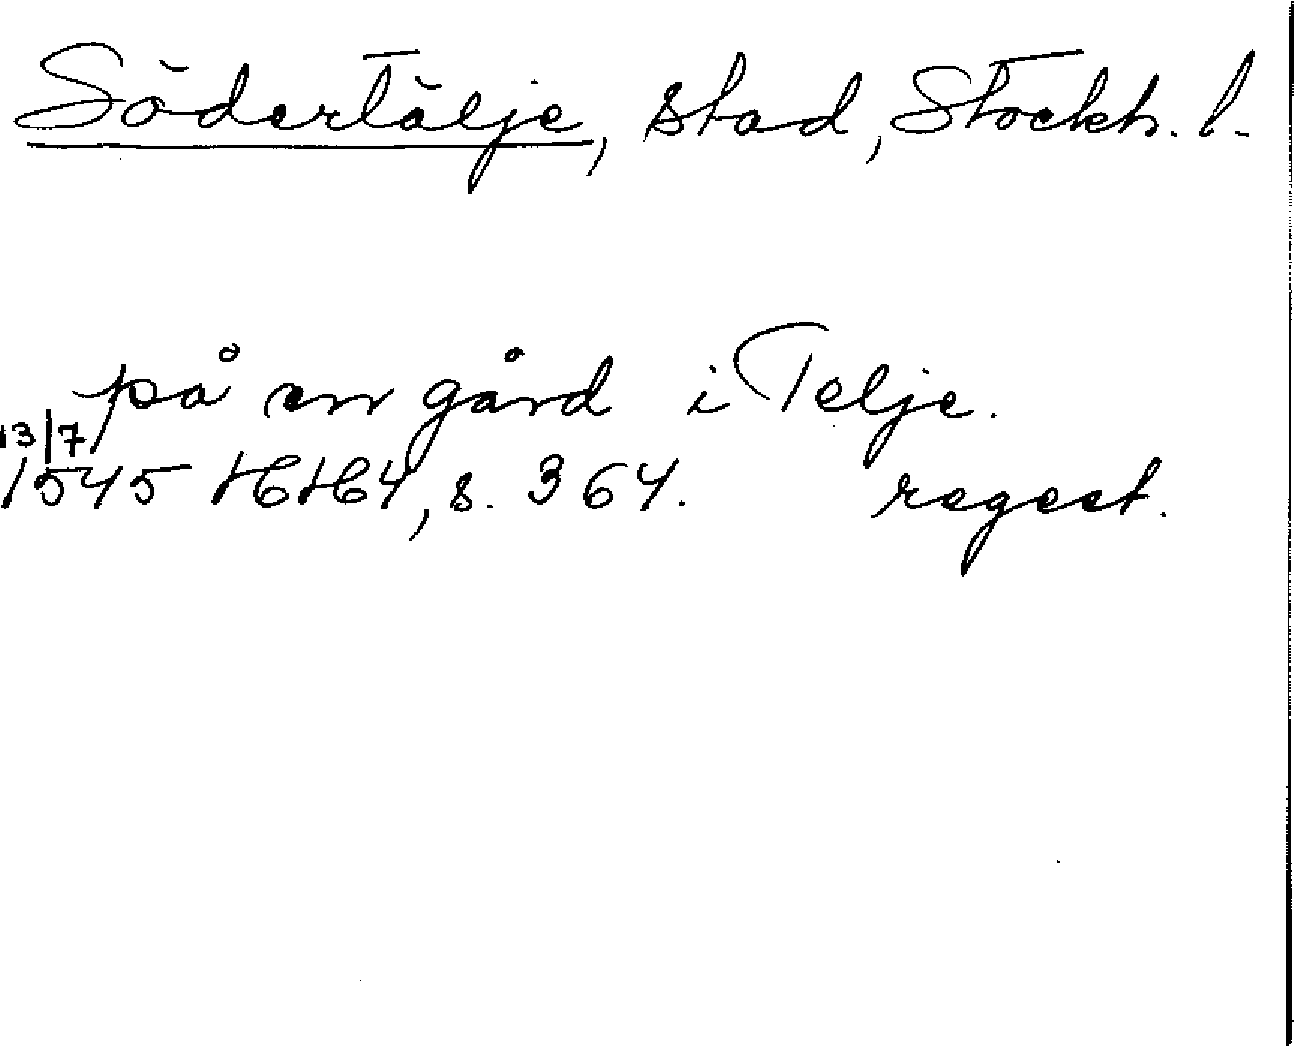 Södertälje, stad, Stockh. l.
på en gård i Telje.
13/7
1545 HH4, s. 364. regest.